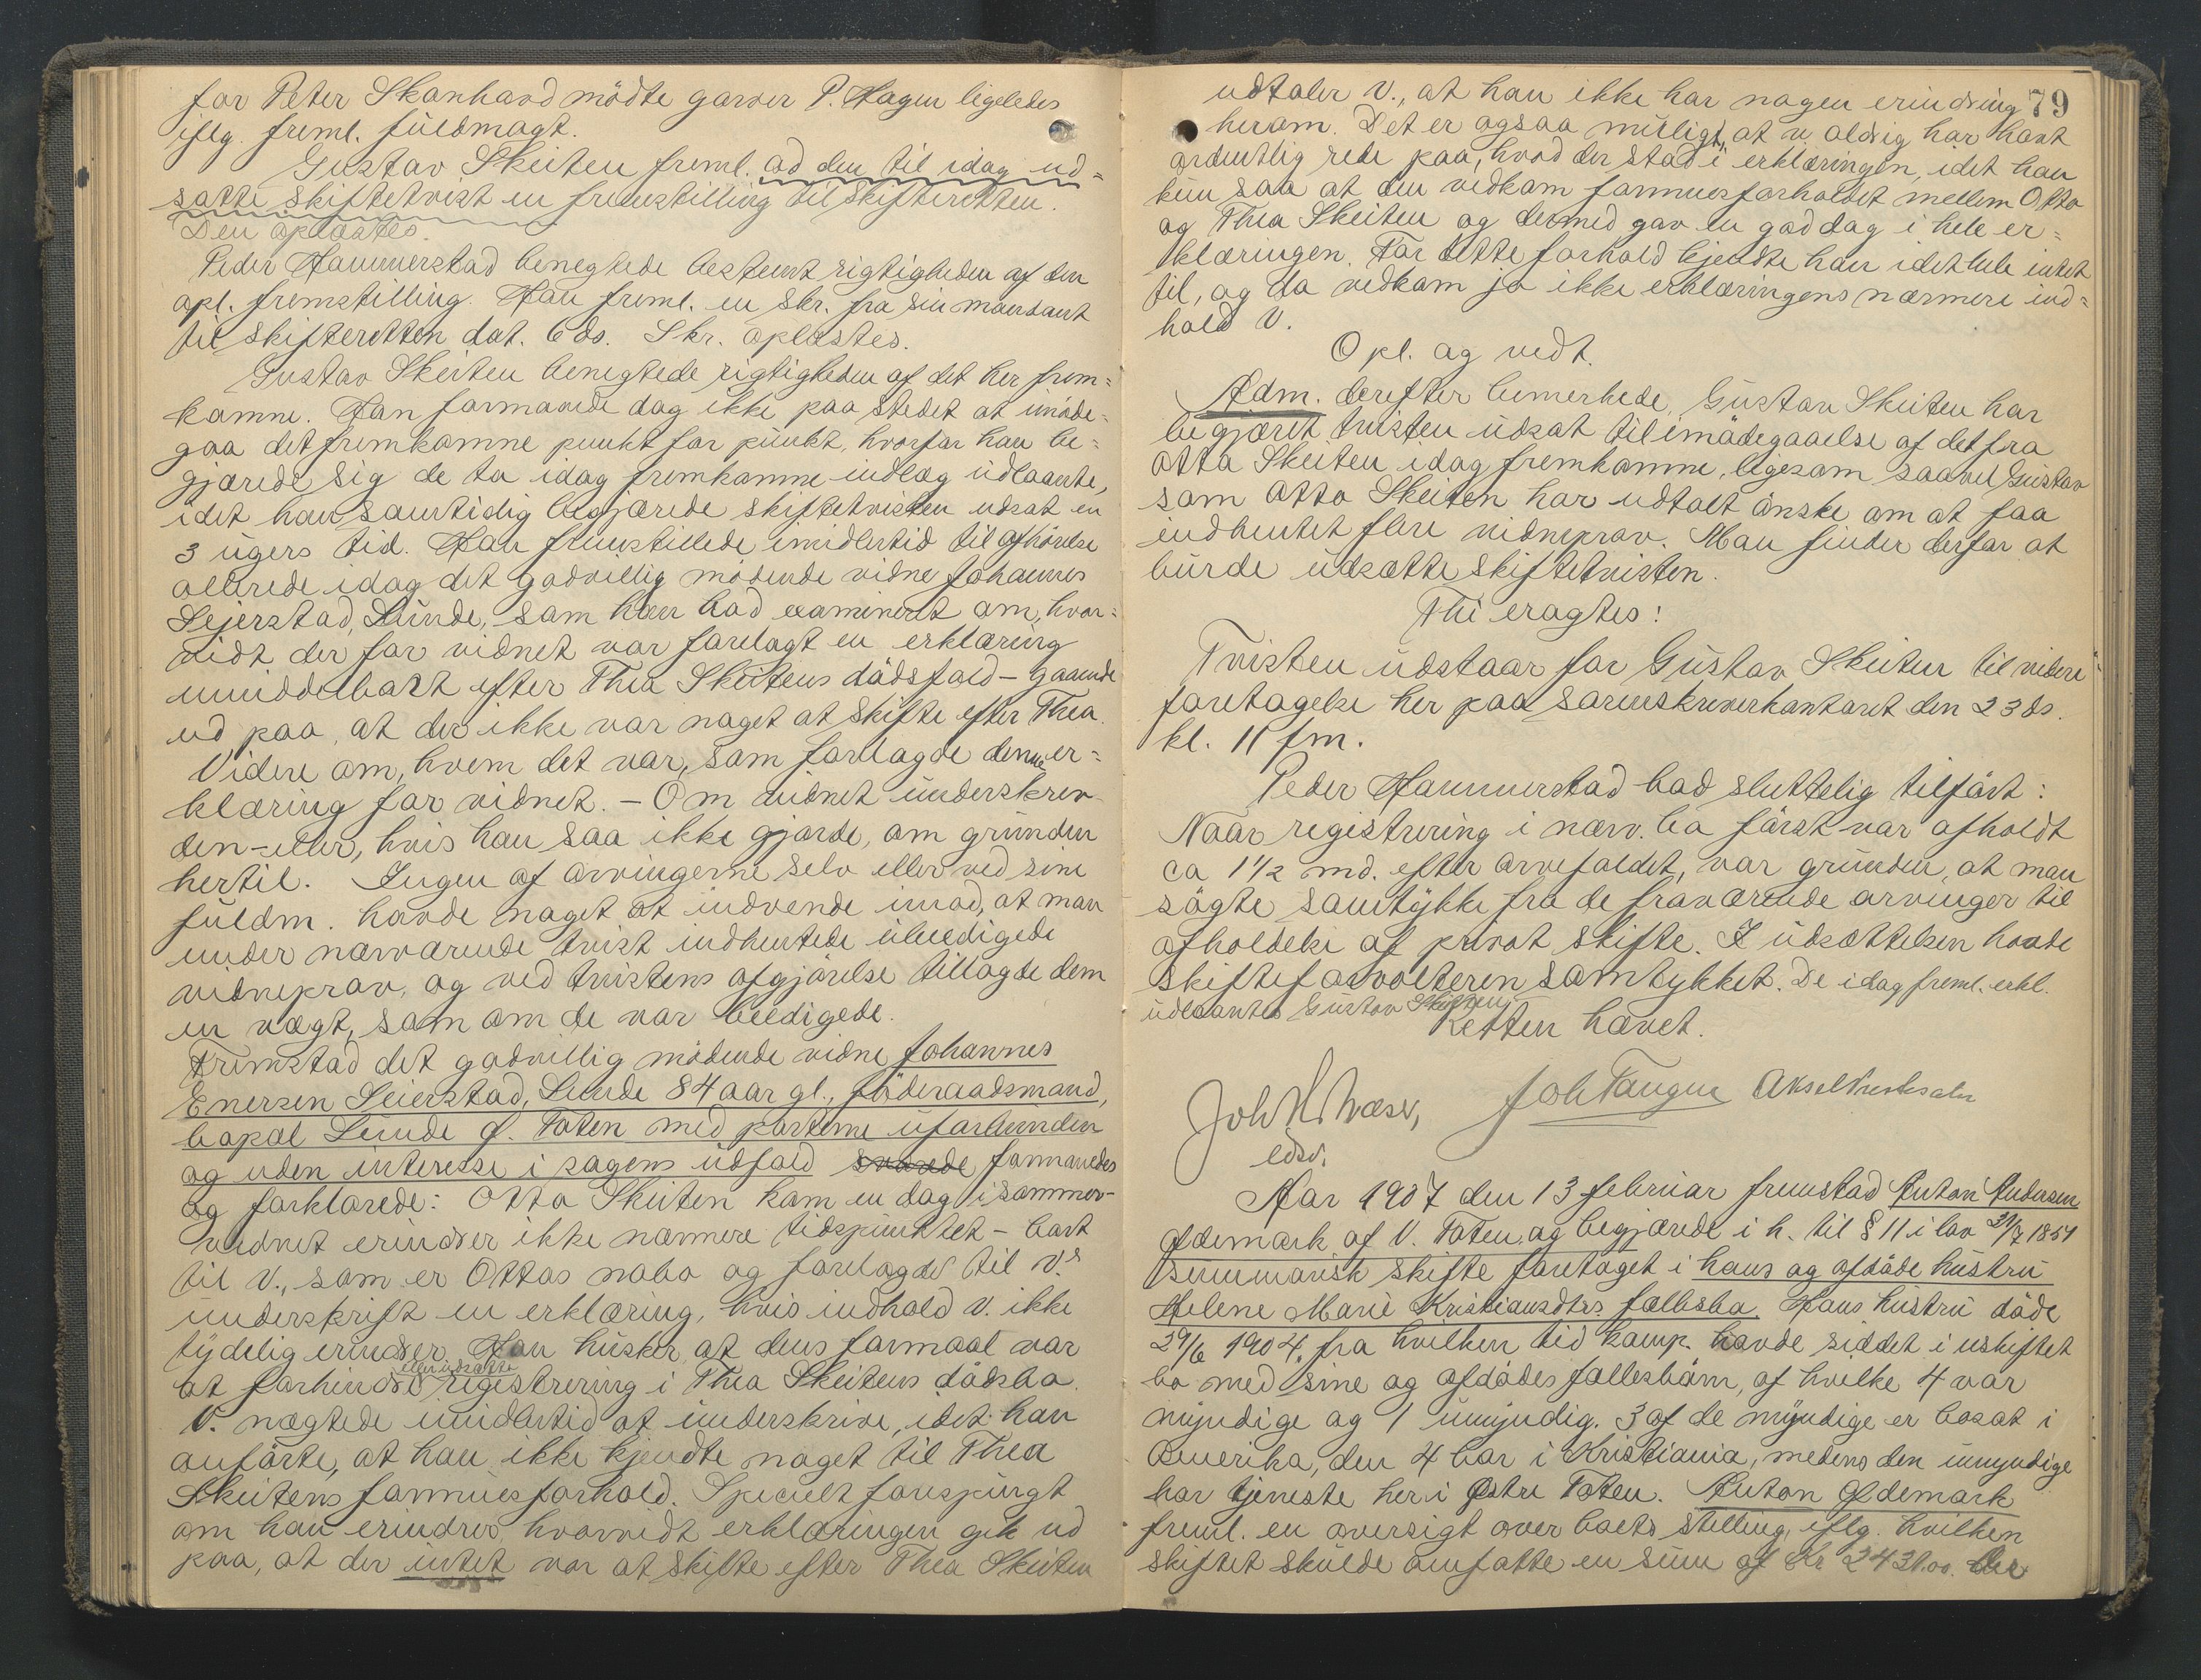 for Peter Skonhovd mödte garver P. Hagen ligeledes
iflg. freml. fuldmagt.
Gustav Skeiten freml. ad den til idag ud-
satte skiftetvist en fremstilling til skifteretten.
Den oplæstes.
Peder Hammerstad benegtede bestemt rigtigheden af den
opl. fremstilling. Han freml. en skr. fra sin mandant
til skifteretten dat. 6 ds. Skr. oplæstes.
Gustav Skeiten benegtede rigtigheden af det her frem-
komne. Han formaaede dog ikke paa stedet at imöde-
gaa det fremkomne punkt for punkt, hvorfor han be-
gjærede sig de to idag fremkomne indlæg udlaante,
idet han samtidig begjærede skiftetvisten udsat en
3 ugers tid. Han fremstillede imidlertid til afhörelse
allerede idag det godvillig mödende vidne Johannes
Sejerstad, Lunde, som han bad examineret om, hvor-
vidt der for vidnet var forelagt en erklæring
umiddelbart efter Thea Skeitens dödsfald – gaaende
ud paa, at der ikke var noget at skifte efter Thea.
Videre om, hvem det var, som forelagde denne er-
klæring for vidnet. – Om vidnet underskrev
den – eller, hvis han saa ikke gjorde, om grunden
hertil. Ingen af arvingerne selv eller ved sine
fuldm. havde noget at indvende imod, at man
under nærværende tvist indhentede ubeedigede
vidneprov, og ved tvistens afgjörelse tillagde dem
en vægt, som om de var beedigede.
Fremstod det godvillig mödende vidne Johannes
Enersen Seierstad, Lunde 84 aar gl., föderaadsmand,
bopæl Lunde Ø. Toten med parterne uforbunden
og uden interesse i sagens udfald svarede formanedes
og forklarede: Otto Skeiten kom en dag isommer –
vidnet erindrer ikke nærmere tidspunktet – bort
til V., som er Ottos nabo og forelagde til V.s
underskrift en erklæring, hvis indhold V. ikke
tydelig erindrer. Han husker, at dens formaal var
eller udsætte
at forhindre registrering i Thea Skeitens dödsbo.
V. nægtede imidlertid at underskrive, idet han
anförte, at han ikke kjendte noget til Thea
Skeitens formuesforhold. Specielt forespurgt
om han erindrer hvorvidt erklæringen gik ud
paa, at der intet var at skifte efter Thea Skeiten
79
udtaler V., at han ikke har nogen erindring
herom. Det er ogsaa muligt, at V. aldrig har havt
ordentlig rede paa, hvad der stod i erklæringen, idet han
kun saa at den vedkom formuesforholdet mellem Otto
og Thea Skeiten og dermed gav en god dag i hele er-
klæringen. For dette forhold kjendte han idethele intet
til, og da vedkom jo ikke erklæringens nærmere ind-
hold V.
Opl. og vedt.
Adm. derefter bemerkede, Gustav Skeiten har
begjæret tvisten udsat til imödegaaelse af det fra
Otto Skeiten idag fremkomne, ligesom saavel Gustav
som Otto Skeiten har udtalt önske om at faa
indhentet flere vidneprov. Man finder derfor at
burde udsætte skiftetvisten.
Thi eragtes:
Tvisten udstaar for Gustav Skeiten til videre
foretagelse her paa sorenskriverkontoret den 23 ds.
kl. 11 fm.
Peder Hammerstad bad sluttelig tilfört:
Naar registrering i nærv. bo först var afholdt
ca 1½ md. efter arvefaldet, var grunden, at man
sögte samtykke fra de fraværende arvinger til
afholdelse af privat skifte. I udsættelsen havde
skifteforvalteren samtykket. De idag freml. erkl.
udlaantes Gustav Skeiten
Retten hævet.
Joh
edsv.
Joh Tangen Aksel
Aar 1907 den 13 februar fremstod Anton Andersen
Oldemark af V. Toten, og begjærede i h. til § 11 i lov 31/7 1851
summarisk skifte foretaget i hans og afdöde hustru
Helene Marie Kristiansdtrs fællesbo. Hans hustru döde
29/6 1904, fra hvilken tid komp. havde siddet i uskiftet
bo med sine og afdödes fællesbörn, af hvilke 4 var
myndige og 1 umyndig. 3 af de myndige er bosat i
Amerika, den 4 bor i Kristiania, medens den umyndige
har tjeneste her i Østre Toten. Anton Oldemark
freml. en oversigt over boets stilling, iflg. hvilken
skiftet skulde omfatte en sum af Kr 2431.00.